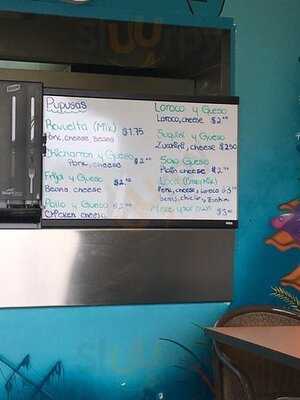 Pupusas
Revuelta (Mix) $1.75
Pork, cheese Beans
Chicharron y Queso
Pork, cheese $2.00
Frijol y Queso $2.00
Beans, cheese
Pollo y Queso $2.00
Chicken cheese
Loroco y Queso
Loroco, cheese $2.00
y Queso
Zucchini, cheese $2.50
Solo Queso
Plain cheese $2.00
Loca
Pork, cheese, Loroco
Make your own